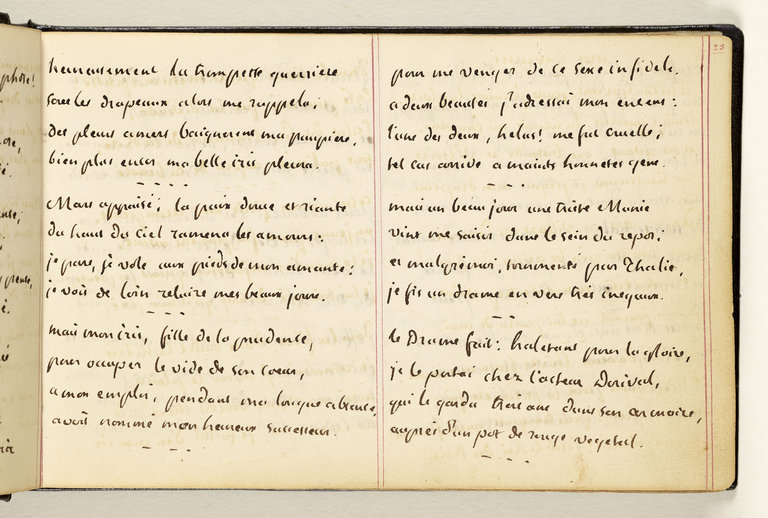 phose!
heureusement la trompette guerriere
sous les drapeaux alors me rappela;
des pleurs amers baignerent ma paupiere,
bien plus encor ma belle iris pleura.
Mars appaisé, la paix douce et riante
du haut du ciel ramena les amours:
je pars, je vole aux pieds de mon amante:
je vois de loin reluire mes beaux jours.
mais mon iris, fille de la prudence,
pour occuper le vide de son coeur,
a mon emploi, pendant ma longue absence,
avoit nommé mon heureux successeur.
23
pour me venger de ce sexe infidele,
a deux beautés j'adressai mon encens:
l'une des deux, helas! me fut cruelle;
tel cas arrive a maints honnetes gens.
mais un beau jour une triste Manie
vint me saisir dans le sein du repos;
et malgré moi, tourmenté par Thalie,
je fis un drame en vers très inegaux.
le Drame fait: haletant pour la gloire,
je le portai chez l'acteur Dorival,
qui le garda trois ans dans son armoire,
auprès d'un pot de rouge vegetal.